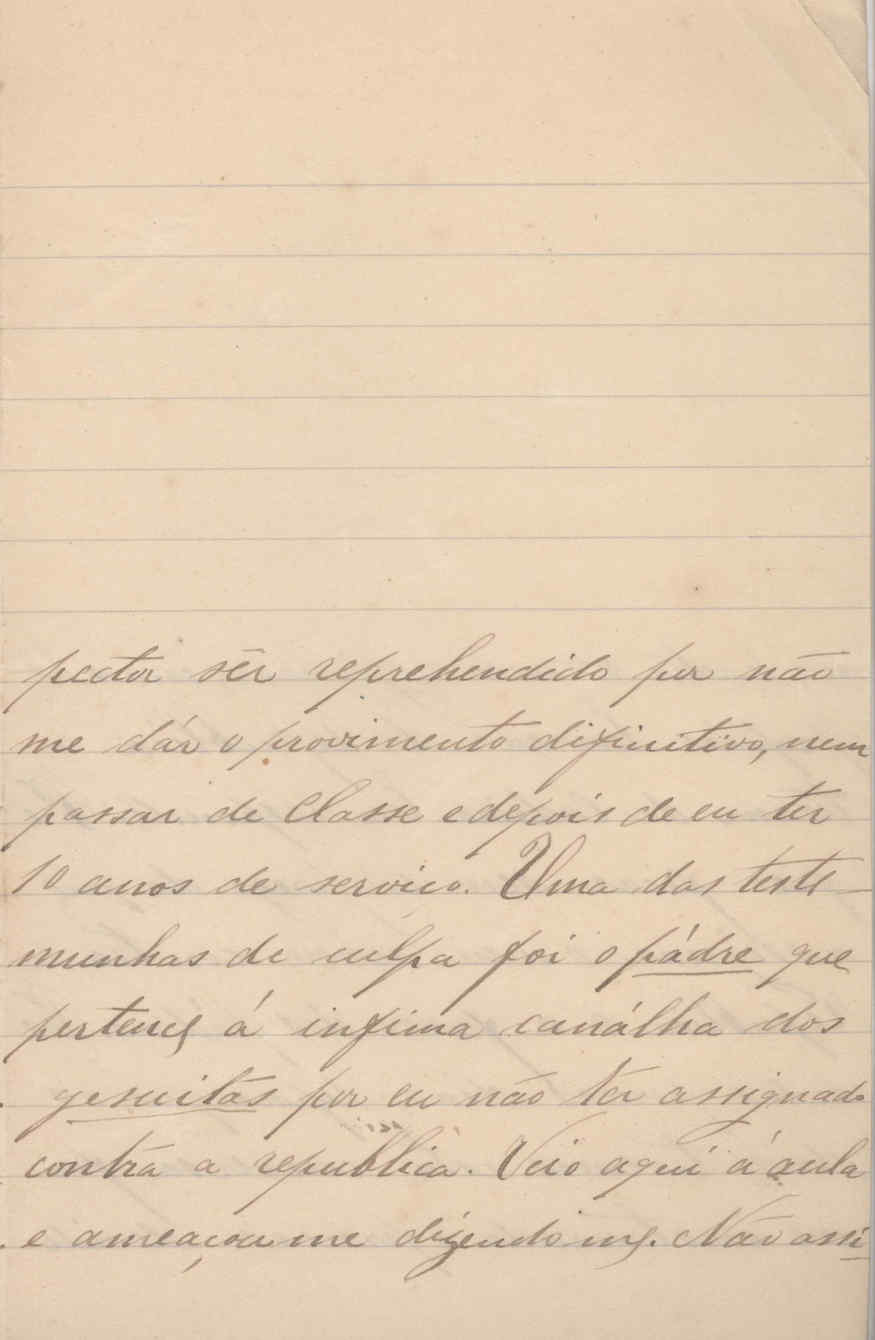 pector sêr reprehendido por não
me dár o provimento difinitivo, nem
passar de classe e depois de eu ter
10 anos de serviço. Uma das teste-
munhas de culpa foi o pádre que
pertence á infima canálha dos
gesuitas por eu não ter assignado
contra a republica. Veio aquí á aula
e ameaçou me dizendo me. Não assi